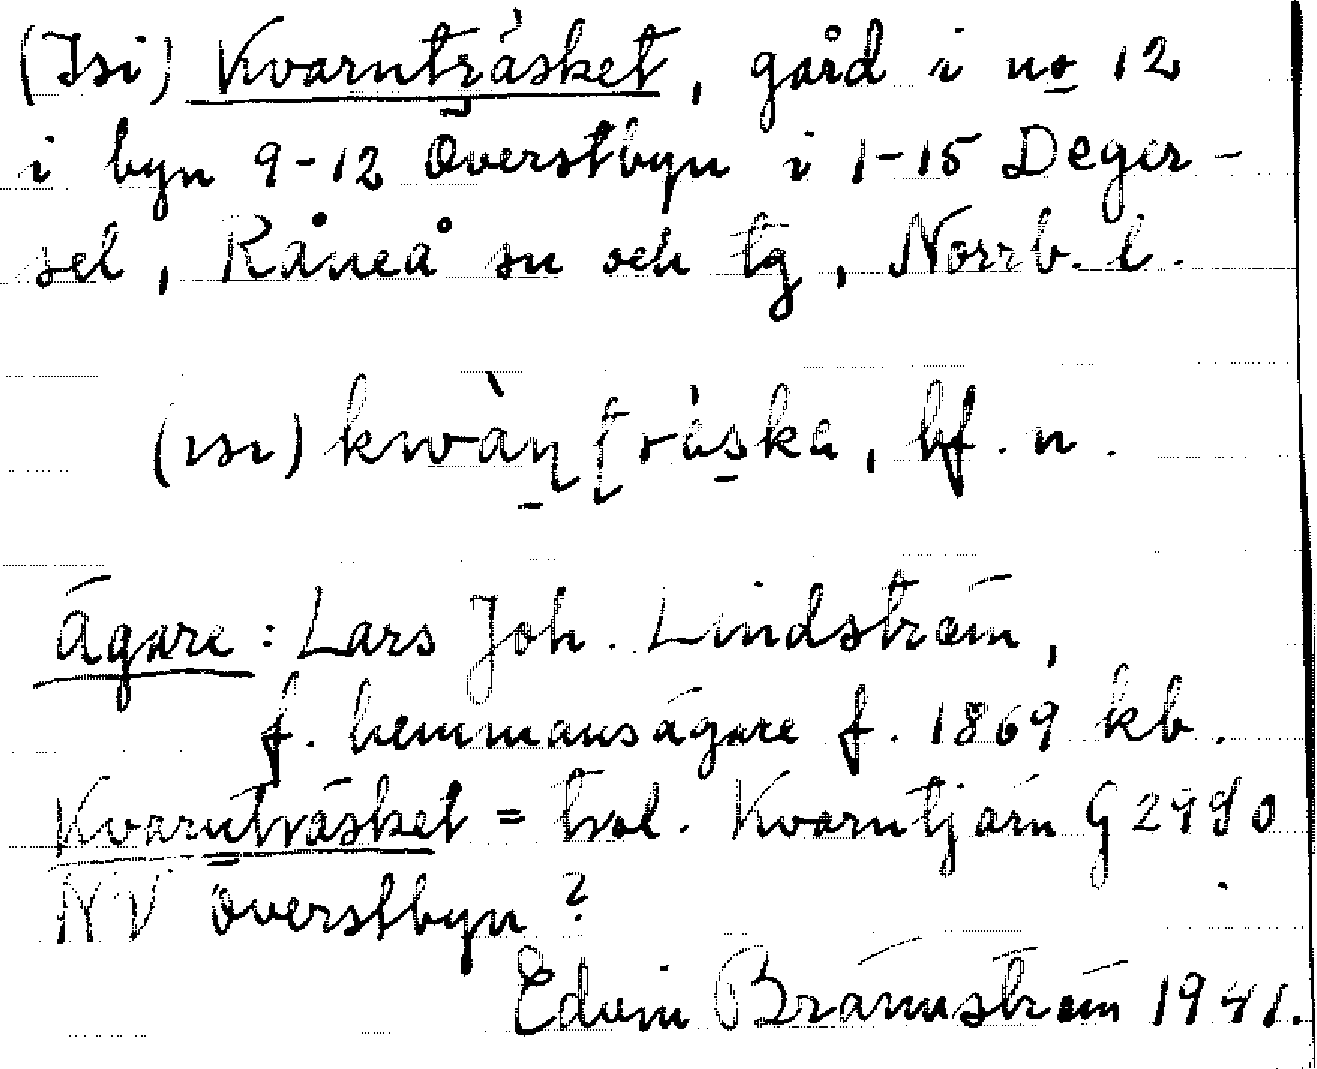 (Isi) Kvarnträsket, gård i no 12
i byn 9-12 Överstbyn i 1-15 Deger-
sel, Råneå sn och tg, Norrb. l.
(ısı) kwàṇṭräska, bf. n.
Ägare: Lars Joh. Lindström,
f. hemmansägare f. 1869 kb.
Kvarnträsket = trol. Kvarntjärn G 2490
NV Överstbyn?
Edvin Brännström 1941.